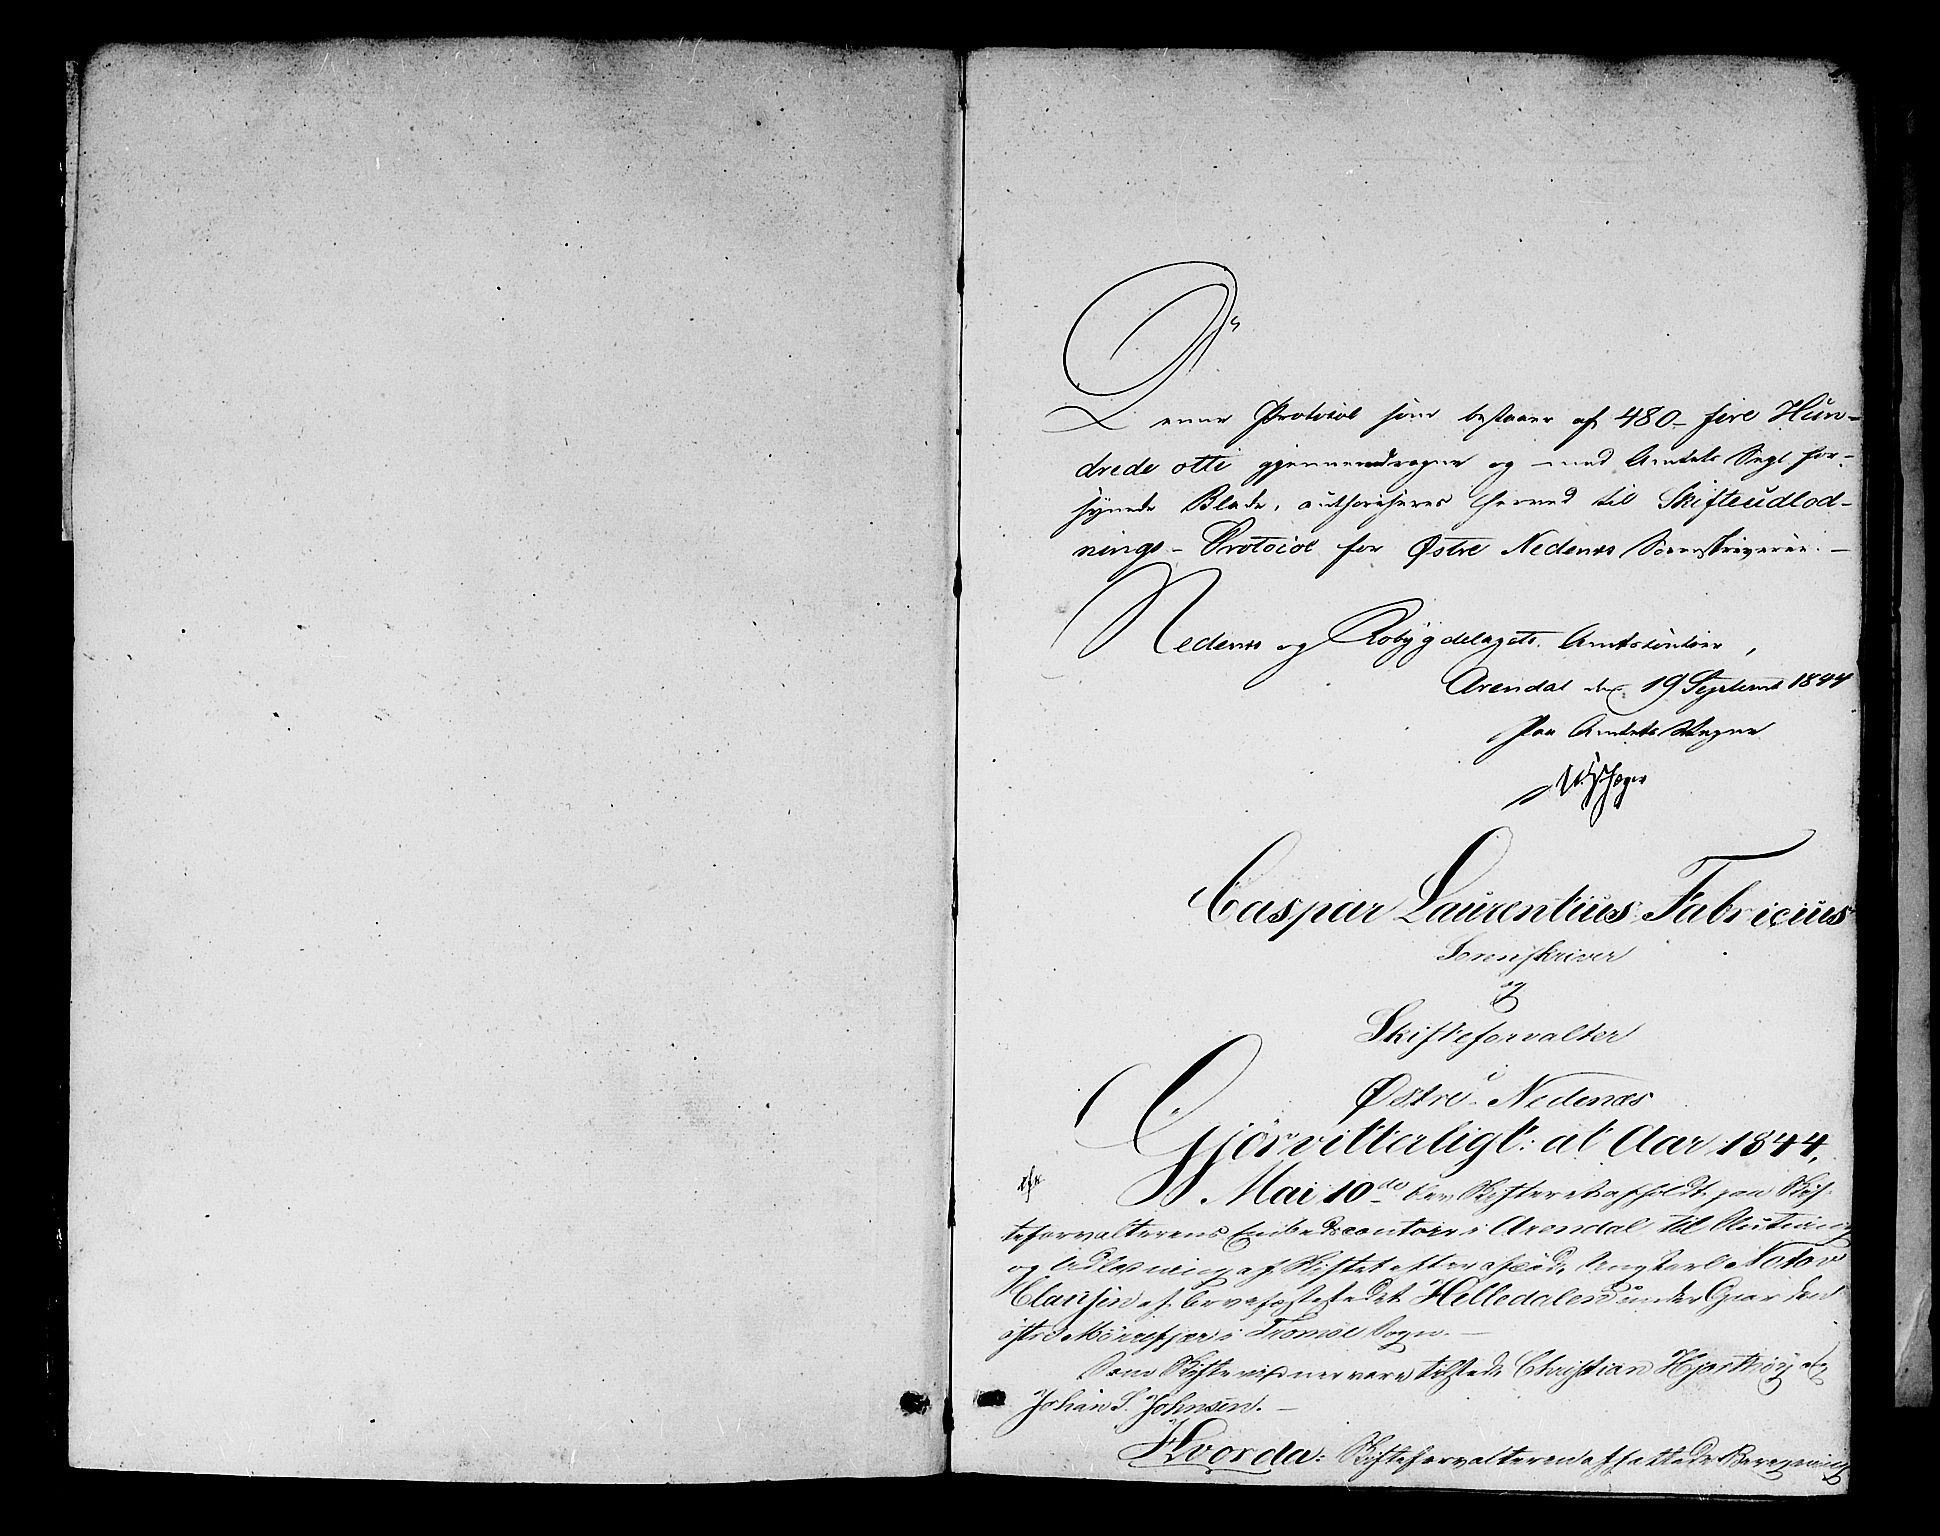 Denne Protocol som bestaaer af 480 - fire Hun-
drede otti gjennemdragne og med Amtets Segl for-
synede Blade, authoriseres herved til Skifteudlod-
nings-Protocol for Østre Nedenæs Sorenskriverie. -
Nedenæs og Robygdelagets Amtscontoir,
Arendal den 19 Septemb 1844
Paa Amtets Vegne
Caspar Laurentius Fabricius
Sorenskriver
og
Skifteforvalter
i
Østre Nedenæs
Gjør vitterligt: at Aar 1844,
Mai 10de blev Skifteret afholdt paa Skif-
teforvalterens Embedscontoir i Arendal til Slutning
og Udlodning af Skiftet efter afdøde Ungkarl
Clausen af Helledalen under Gaarden
østre i Tromøe Sogn. -
Som Skiftevidner vare tilstede Christian og
Johan S. Johnsen. -
Hvorda: Skifteforvalteren fattede Beregning